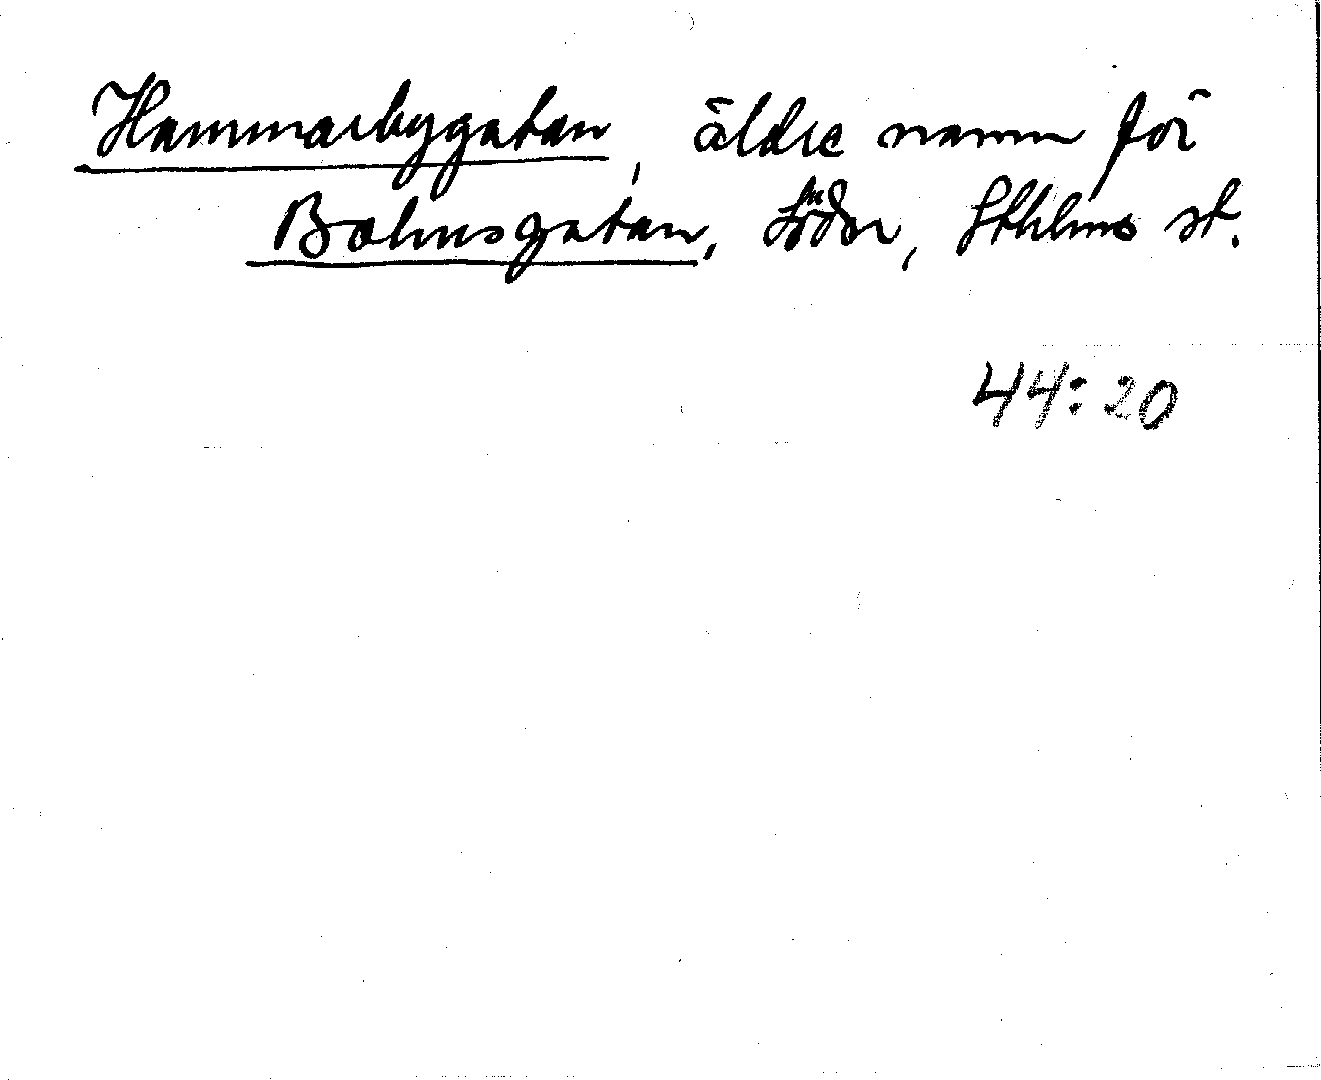 Hammarbygatan, äldre namn för
Bohusgatan, Söder, Sthlms st.
44:20